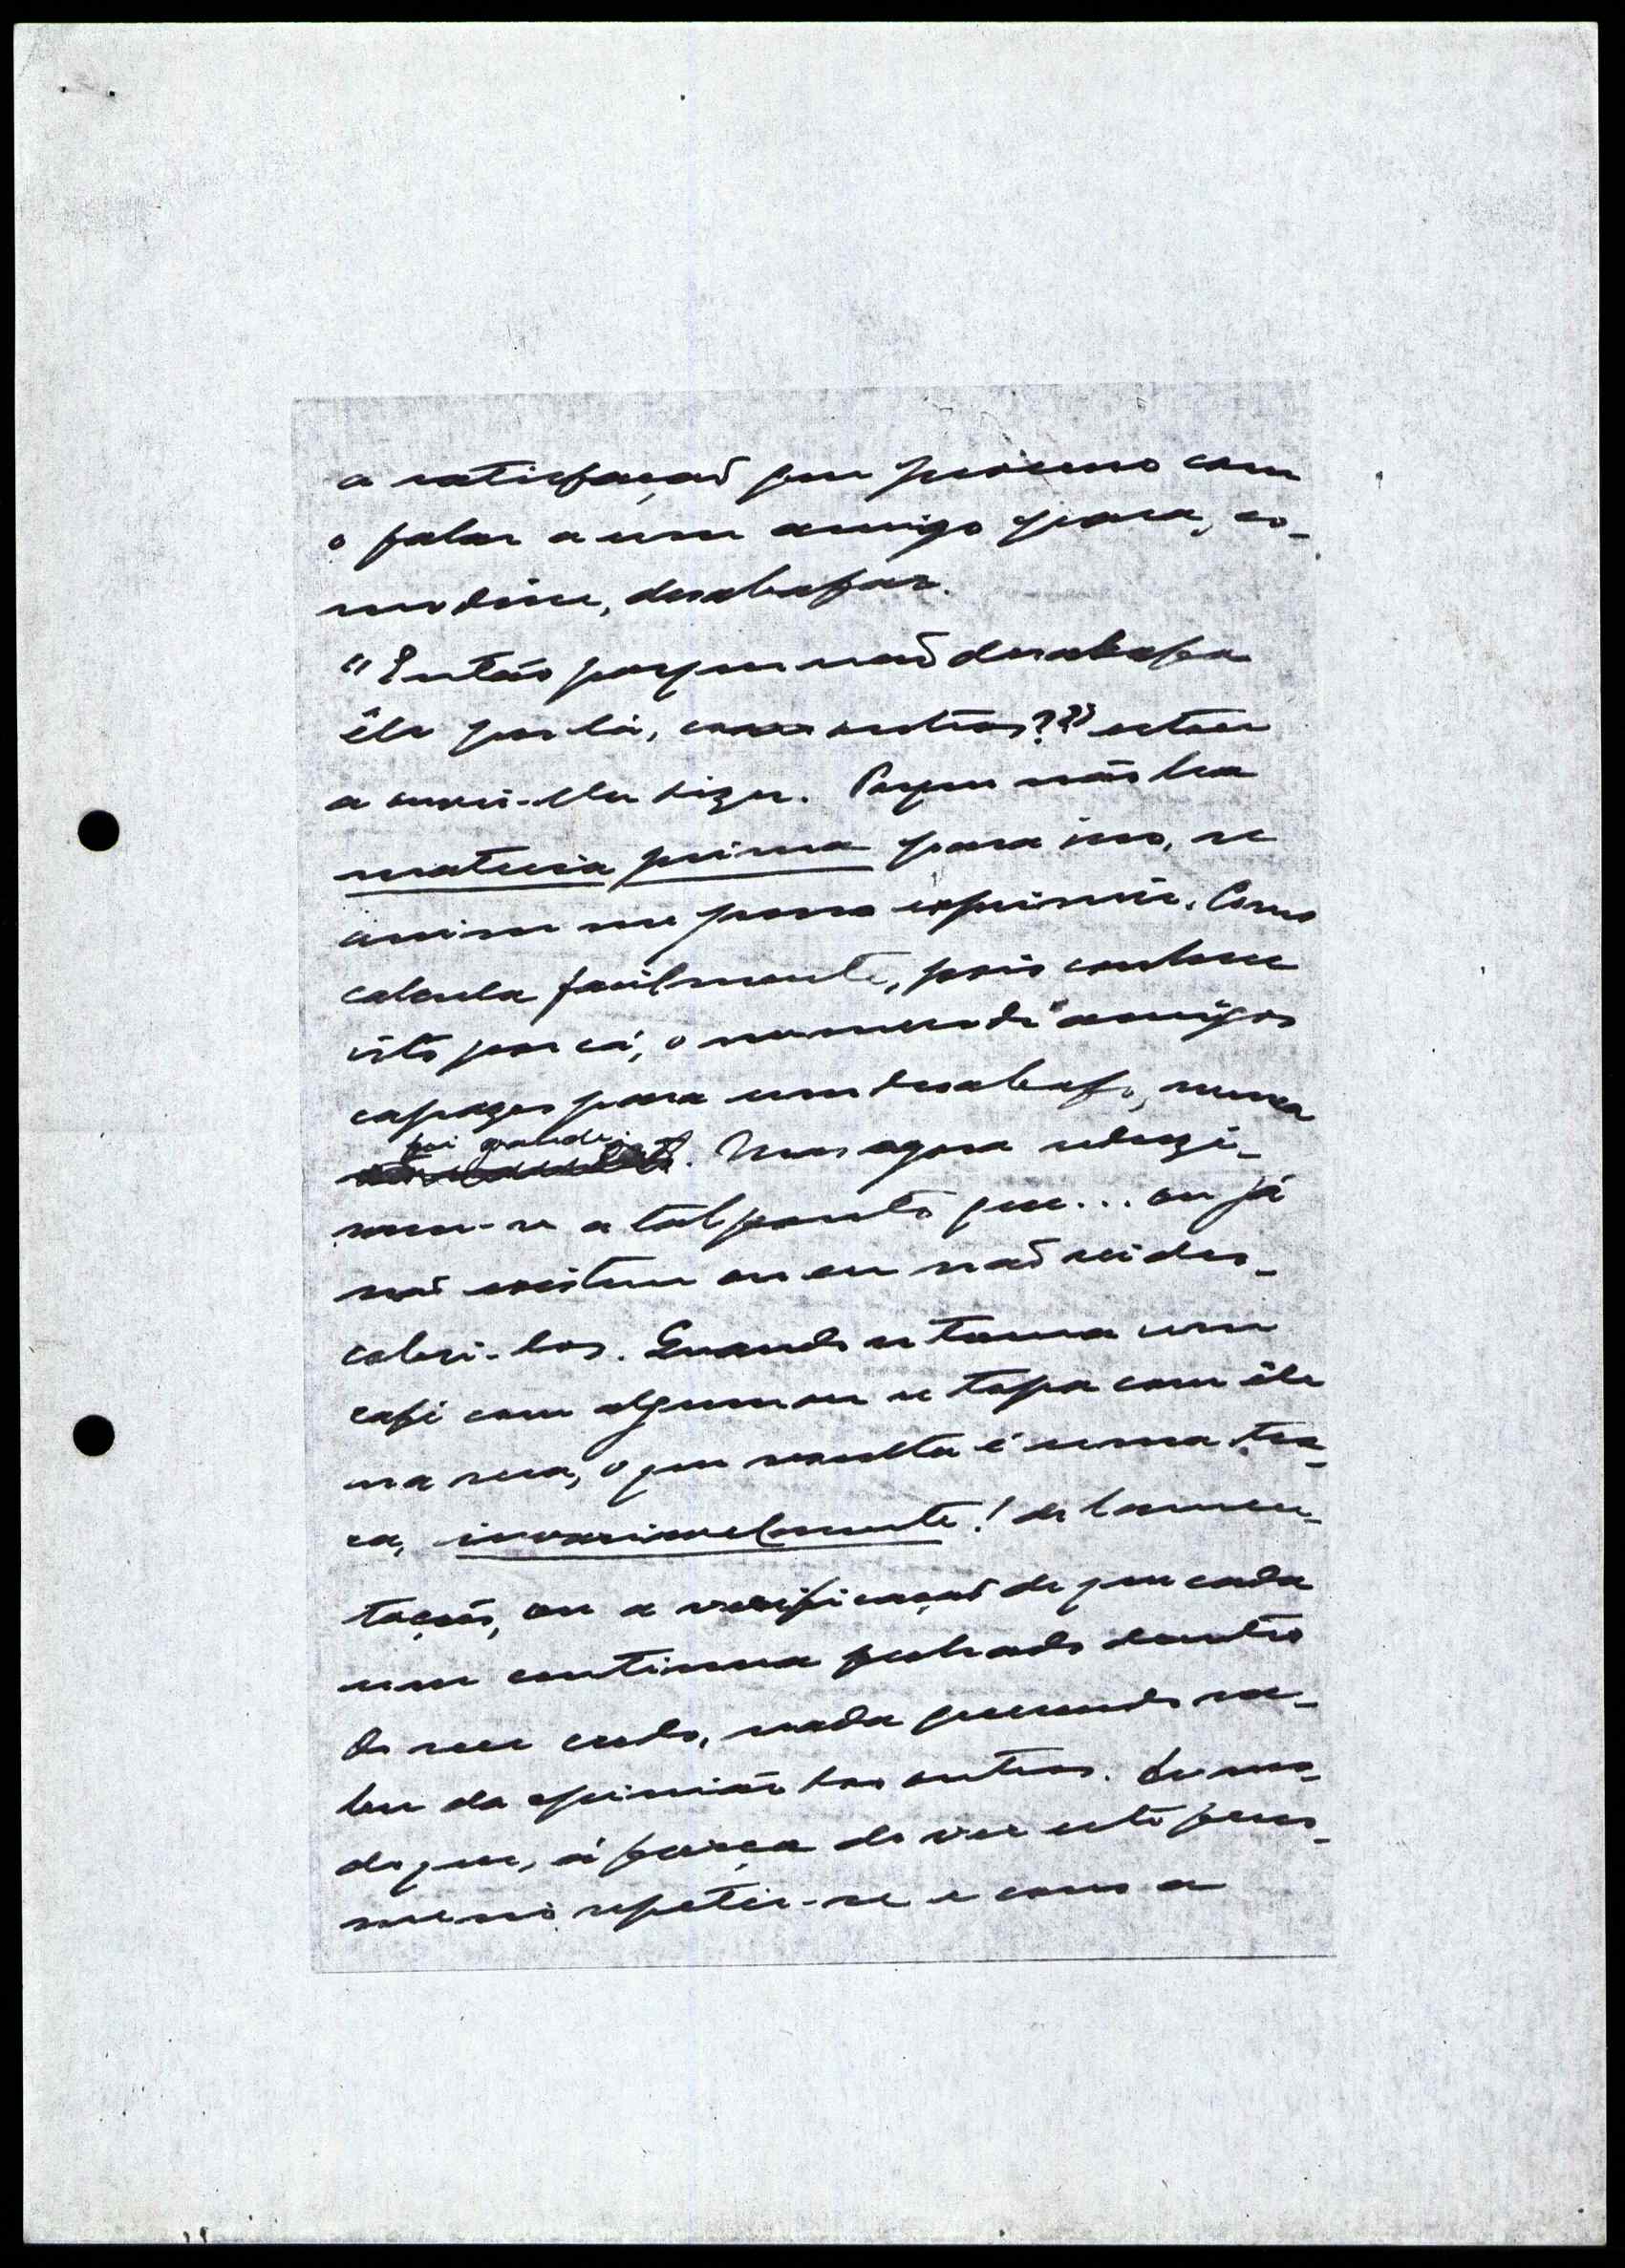 a satisfação que procuro com
o falar a um amigo para, co-
mo disse, desabafar.
"Então porque não desabafa
êle por lá, com outros??" estou
a ouvi-lhe dizer. Porque não ha
materia prima para isso, se
assim me posso exprimir. Como
calcula facilmente, pois conhece
isto por cá, o numero de amigos
capazes para um desabafo, nunca
foi grande. Mas agora reduzi-
ram-se a tal ponto que... ou já
não existem ou eu não sei des-
cobri-los. Quando se toma um
café com algum ou se topa com êle
na rua, o que resulta é uma
invariavelmente! de lamen-
tações, ou a verificação de que cada
um continua fechado dentro
do seu credo, nada querendo sa-
ber da opinião dos outros. De mo-
do que, á força de ver este feno-
meno repetir-se e como a